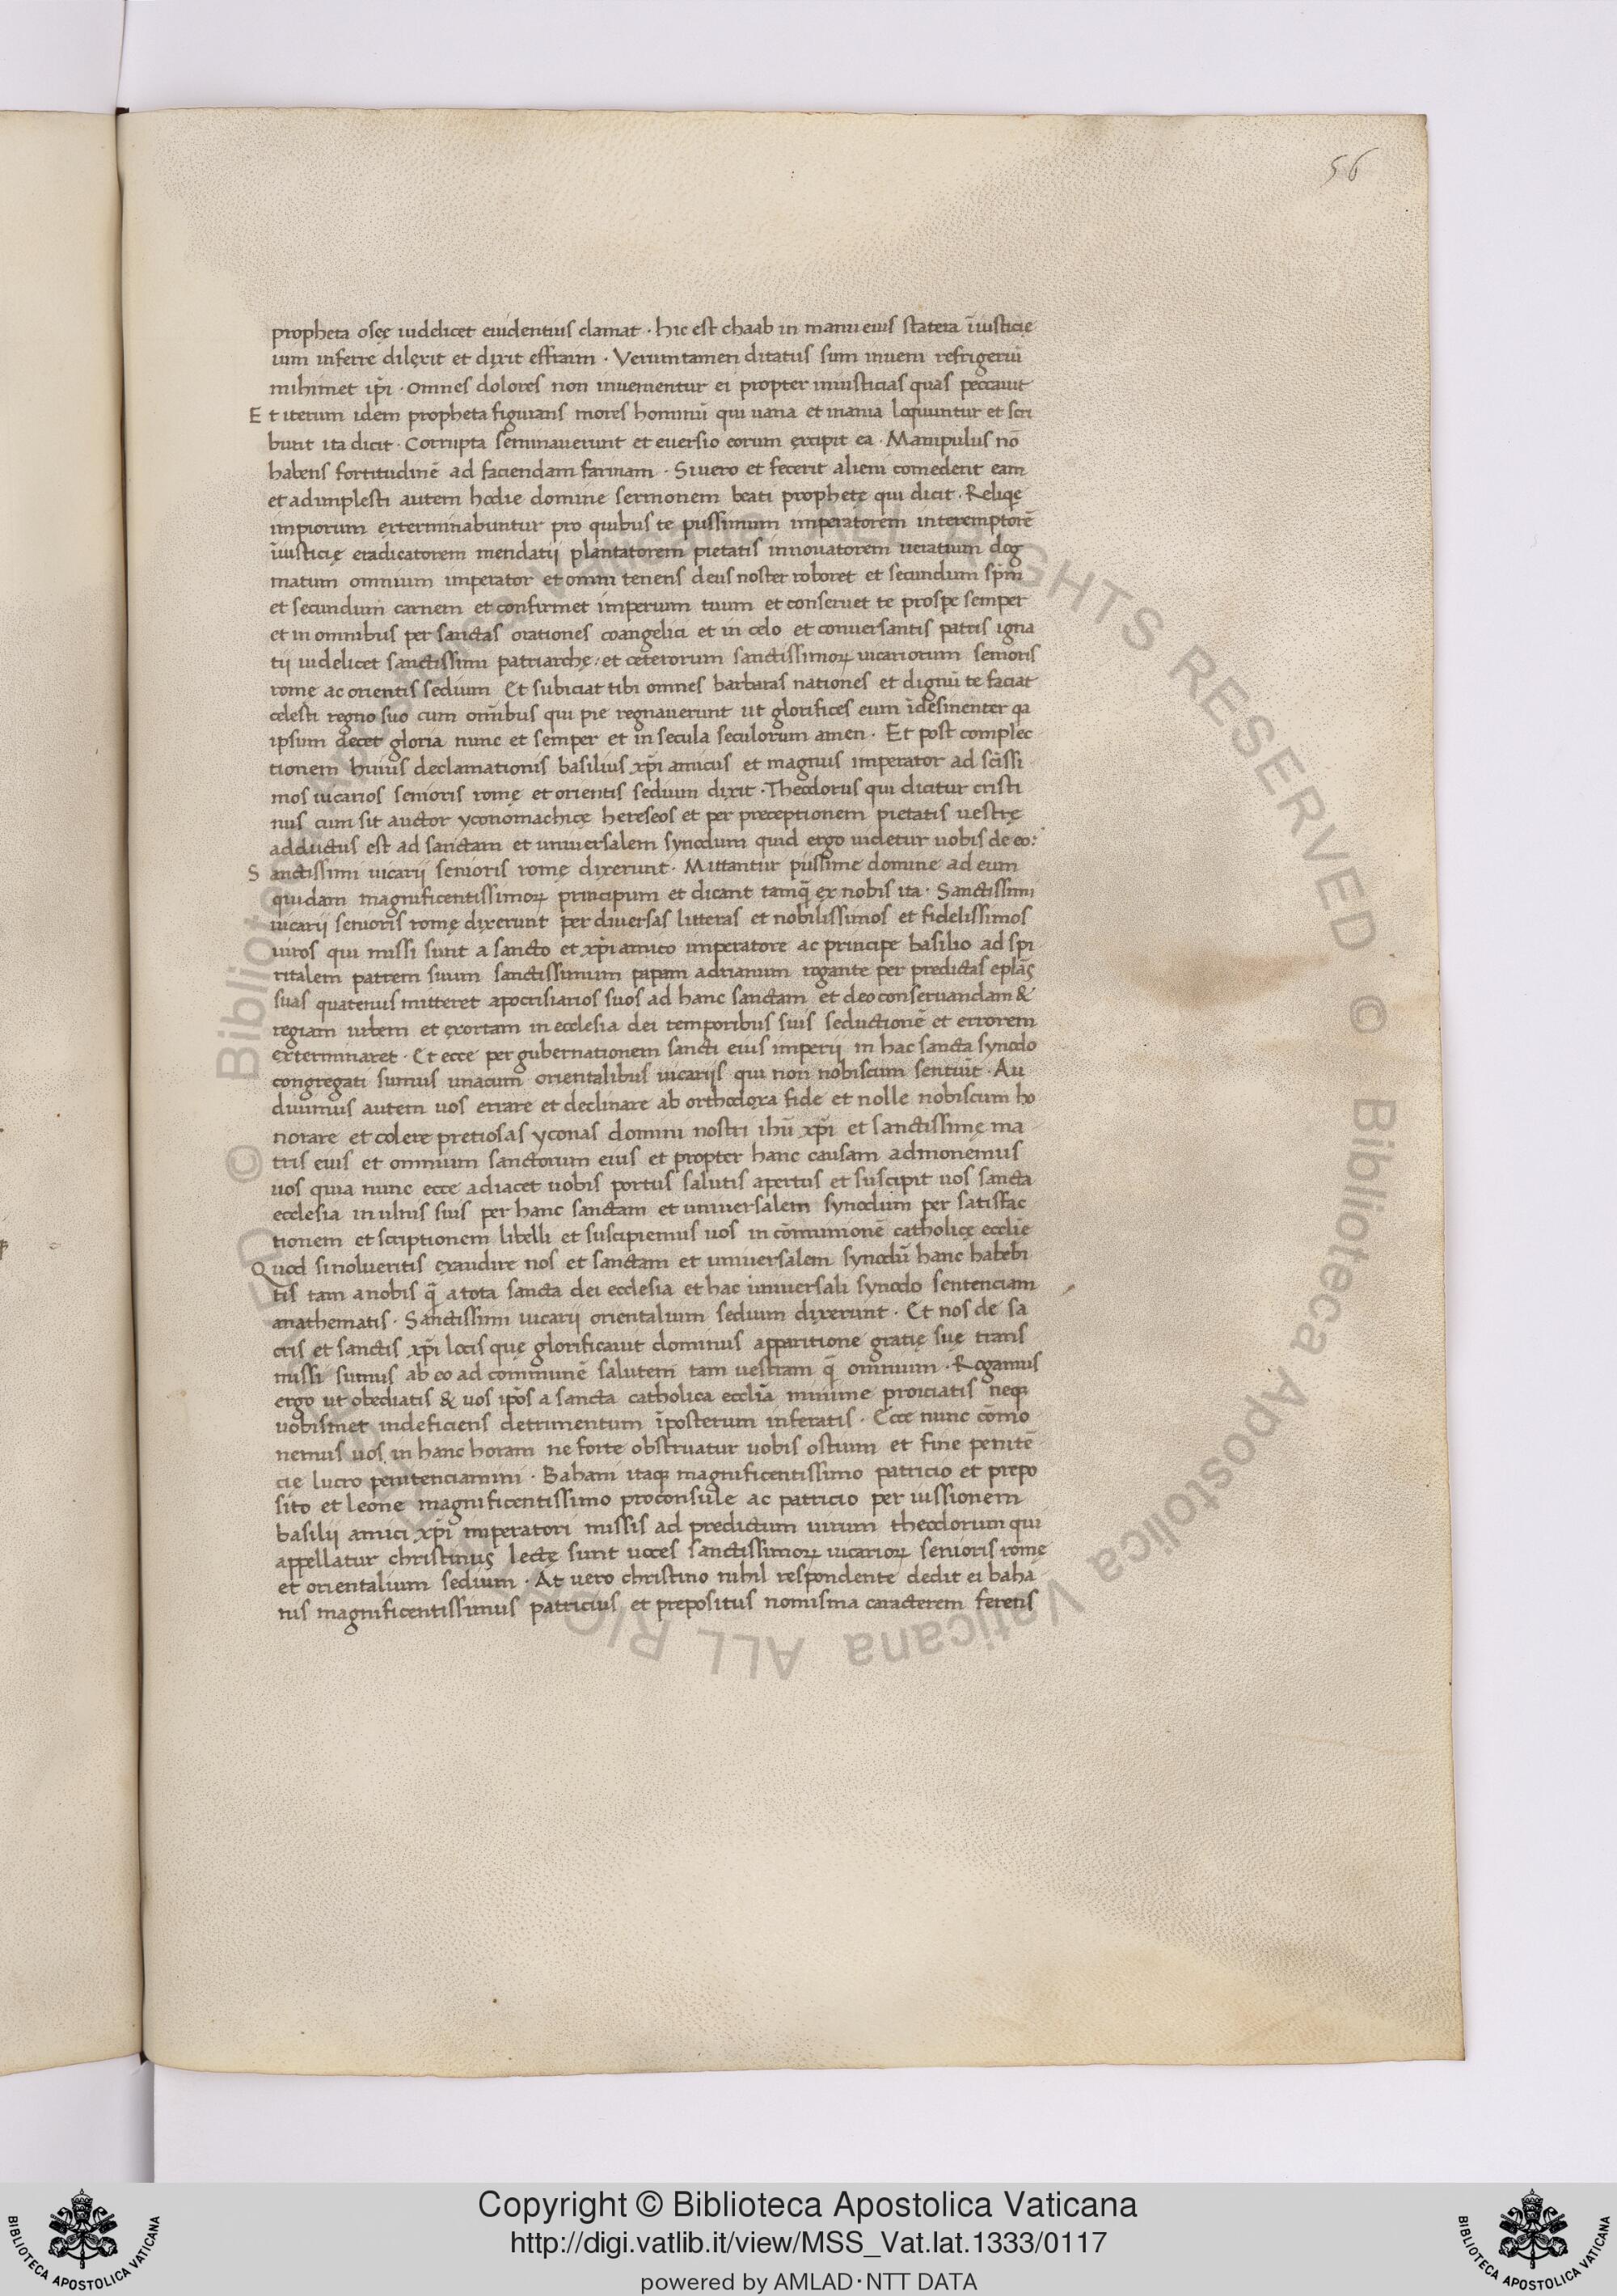 56
propheta oseę uidelicet euidentius clamat · hic est chaab in manu eius statera īiusticię
uim inferre dilęxit et dixit effraim · Veruntamen ditatus sum inueni refrigeriū
mihimet ip̄i · Omnes dolores non inuenientur ei propter iniusticias quas peccauit
Et iterum idem propheta figurans mores hominū qui uana et inania loquuntur et scri
bunt ita dicit · Corrupta seminauerunt et euersio eorum excipit ea · Manipulus nō
habens fortitudinē ad faciendam farinam · Siuero et fecerit alieni comedent eam
et adimplesti autem hodie domine sermonem beati prophetę qui dicit · Reliqę
impiorum exterminabuntur pro quibus te piissimum imperatorem interemptorē
īiusticię eradicatorem mendatii plantatorem pietatis innouatorem ueratium dog
matum omnium imperator et omni tenens deus noster roboret et secundum sp̄m
et secundum carnem et confirmet imperium tuum et conseruet te prospe semper
et in omnibus per sanctas orationes coangelici et in celo et conuersantis patris igna
tii uidelicet sanctissimi patriarchę · et ceterorum sanctissimoꝝ uicariorum senioris
rome ac orientis sedium Et subiciat tibi omnes barbaras nationes et dignū te faciat
celesti regno suo cum om̄ibus qui pie regnauerunt ut glorifices eum īdesinenter qa
ipsum decet gloria nunc et semper et in secula seculorum amen · Et post complec
tionem huius declamationis basilius xp̄i amicus et magnus imperator ad sc̄issi
mos uicarios senioris romę et orientis sedium dixit · Theodorus qui dicitur cristi
nus cum sit auctor yconomachicę hereseos et per preceptionem pietatis uestrę
adductus est ad sanctam et uniuersalem synodum quid ergo uidetur uobis de eo:
Sanctissimi uicarii senioris romę dixerunt · Mittantur piissime domine ad eum
quidam magnificentissimoꝝ principum et dicant tamq̄ ex nobis ita · Sanctissimi
uicarii senioris romę dixerunt per diuersas litteras et nobilissimos et fidelissimos
uiros qui missi sunt a sancto et xp̄i amico imperatore ac principe basilio ad spi
ritalem patrem suum sanctissimum papam adrianum rogante per predictas eplās
suas quatenus mitteret apocrisiarios suos ad hanc sanctam et deo conseruandam &
regiam urbem et exortam in ecclesia dei temporibus suis seductionē et errorem
exterminaret · Et ecce per gubernationem sancti eius imperii in hac sancta synodo
congregati sumus unacum orientalibus uicariis qui non nobiscum sentiūt · Au
diuimus autem uos errare et declinare ab orthodoxa fide et nolle nobiscum ho
norare et colere pretiosas yconas domini nostri ihū xp̄i et sanctissimę ma
tris eius et omnium sanctorum eius et propter hanc causam admonemus
uos quia nunc ecce adiacet uobis portus salutis apertus et suscipit uos sancta
ecclesia in ulnis suis per hanc sanctam et uniuersalem synodum per satisfac
tionem et scriptionem libelli et suscipiemus uos in cōmunionē catholicę ecclīe
Quod si nolueritis exaudire nos et sanctam et uniuersalem synodū hanc habebi
tis tam a nobis q̄ a tota sancta dei ecclesia et hac uniuersali synodo sentenciam
anathematis · Sanctissimi uicarii orientalium sedium dixerunt · Et nos de sa
cris et sanctis xp̄i locis quę glorificauit dominus apparitione gratię suę trans
missi sumus ab eo ad communē salutem tam uestram q̄ omnium · Rogamus
ergo ut obediatis & uos ip̄os a sancta catholica ecclīa minime proiciatis neqꝫ
uobismet indeficiens detrimentum īposterum inferatis · Ecce nunc cōmo
nemus uos in hanc horam ne forte obstruatur uobis ostium et fine penitē
cie lucro penitenciamini · Bahani itaqꝫ magnificentissimo patricio et prepo
sito et leone magnificentissimo proconsule ac patricio per iussionem
basilii amici xp̄i imperatori missis ad predictum uirum theodorum qui
appellatur christinus lectę sunt uoces sanctissimoꝝ uicarioꝝ senioris romę
et orientalium sedium · At uero christino nihil respondente dedit ei baha
nus magnificentissimus patricius et prepositus nomisma caracterem ferens
© Biblioteca Apostolica Vaticana ALL RIGHTS RESERVED
Copyright © Biblioteca Apostolica Vaticana
http://digi.vatlib.it/view/MSS_Vat.lat.1333/0117
powered by AMLAD·NTT DATA
BIBLIOTECA APOSTOLICA VATICANA
BIBLIOTECA APOSTOLICA VATICANA